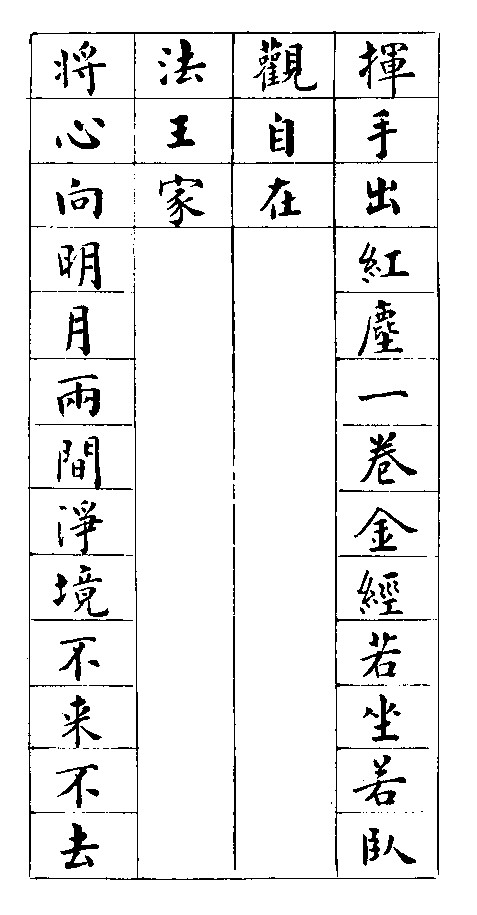 揮手出紅塵一卷金經若坐若臥
觀自在
法王家
將心向明月兩間淨境不来不去